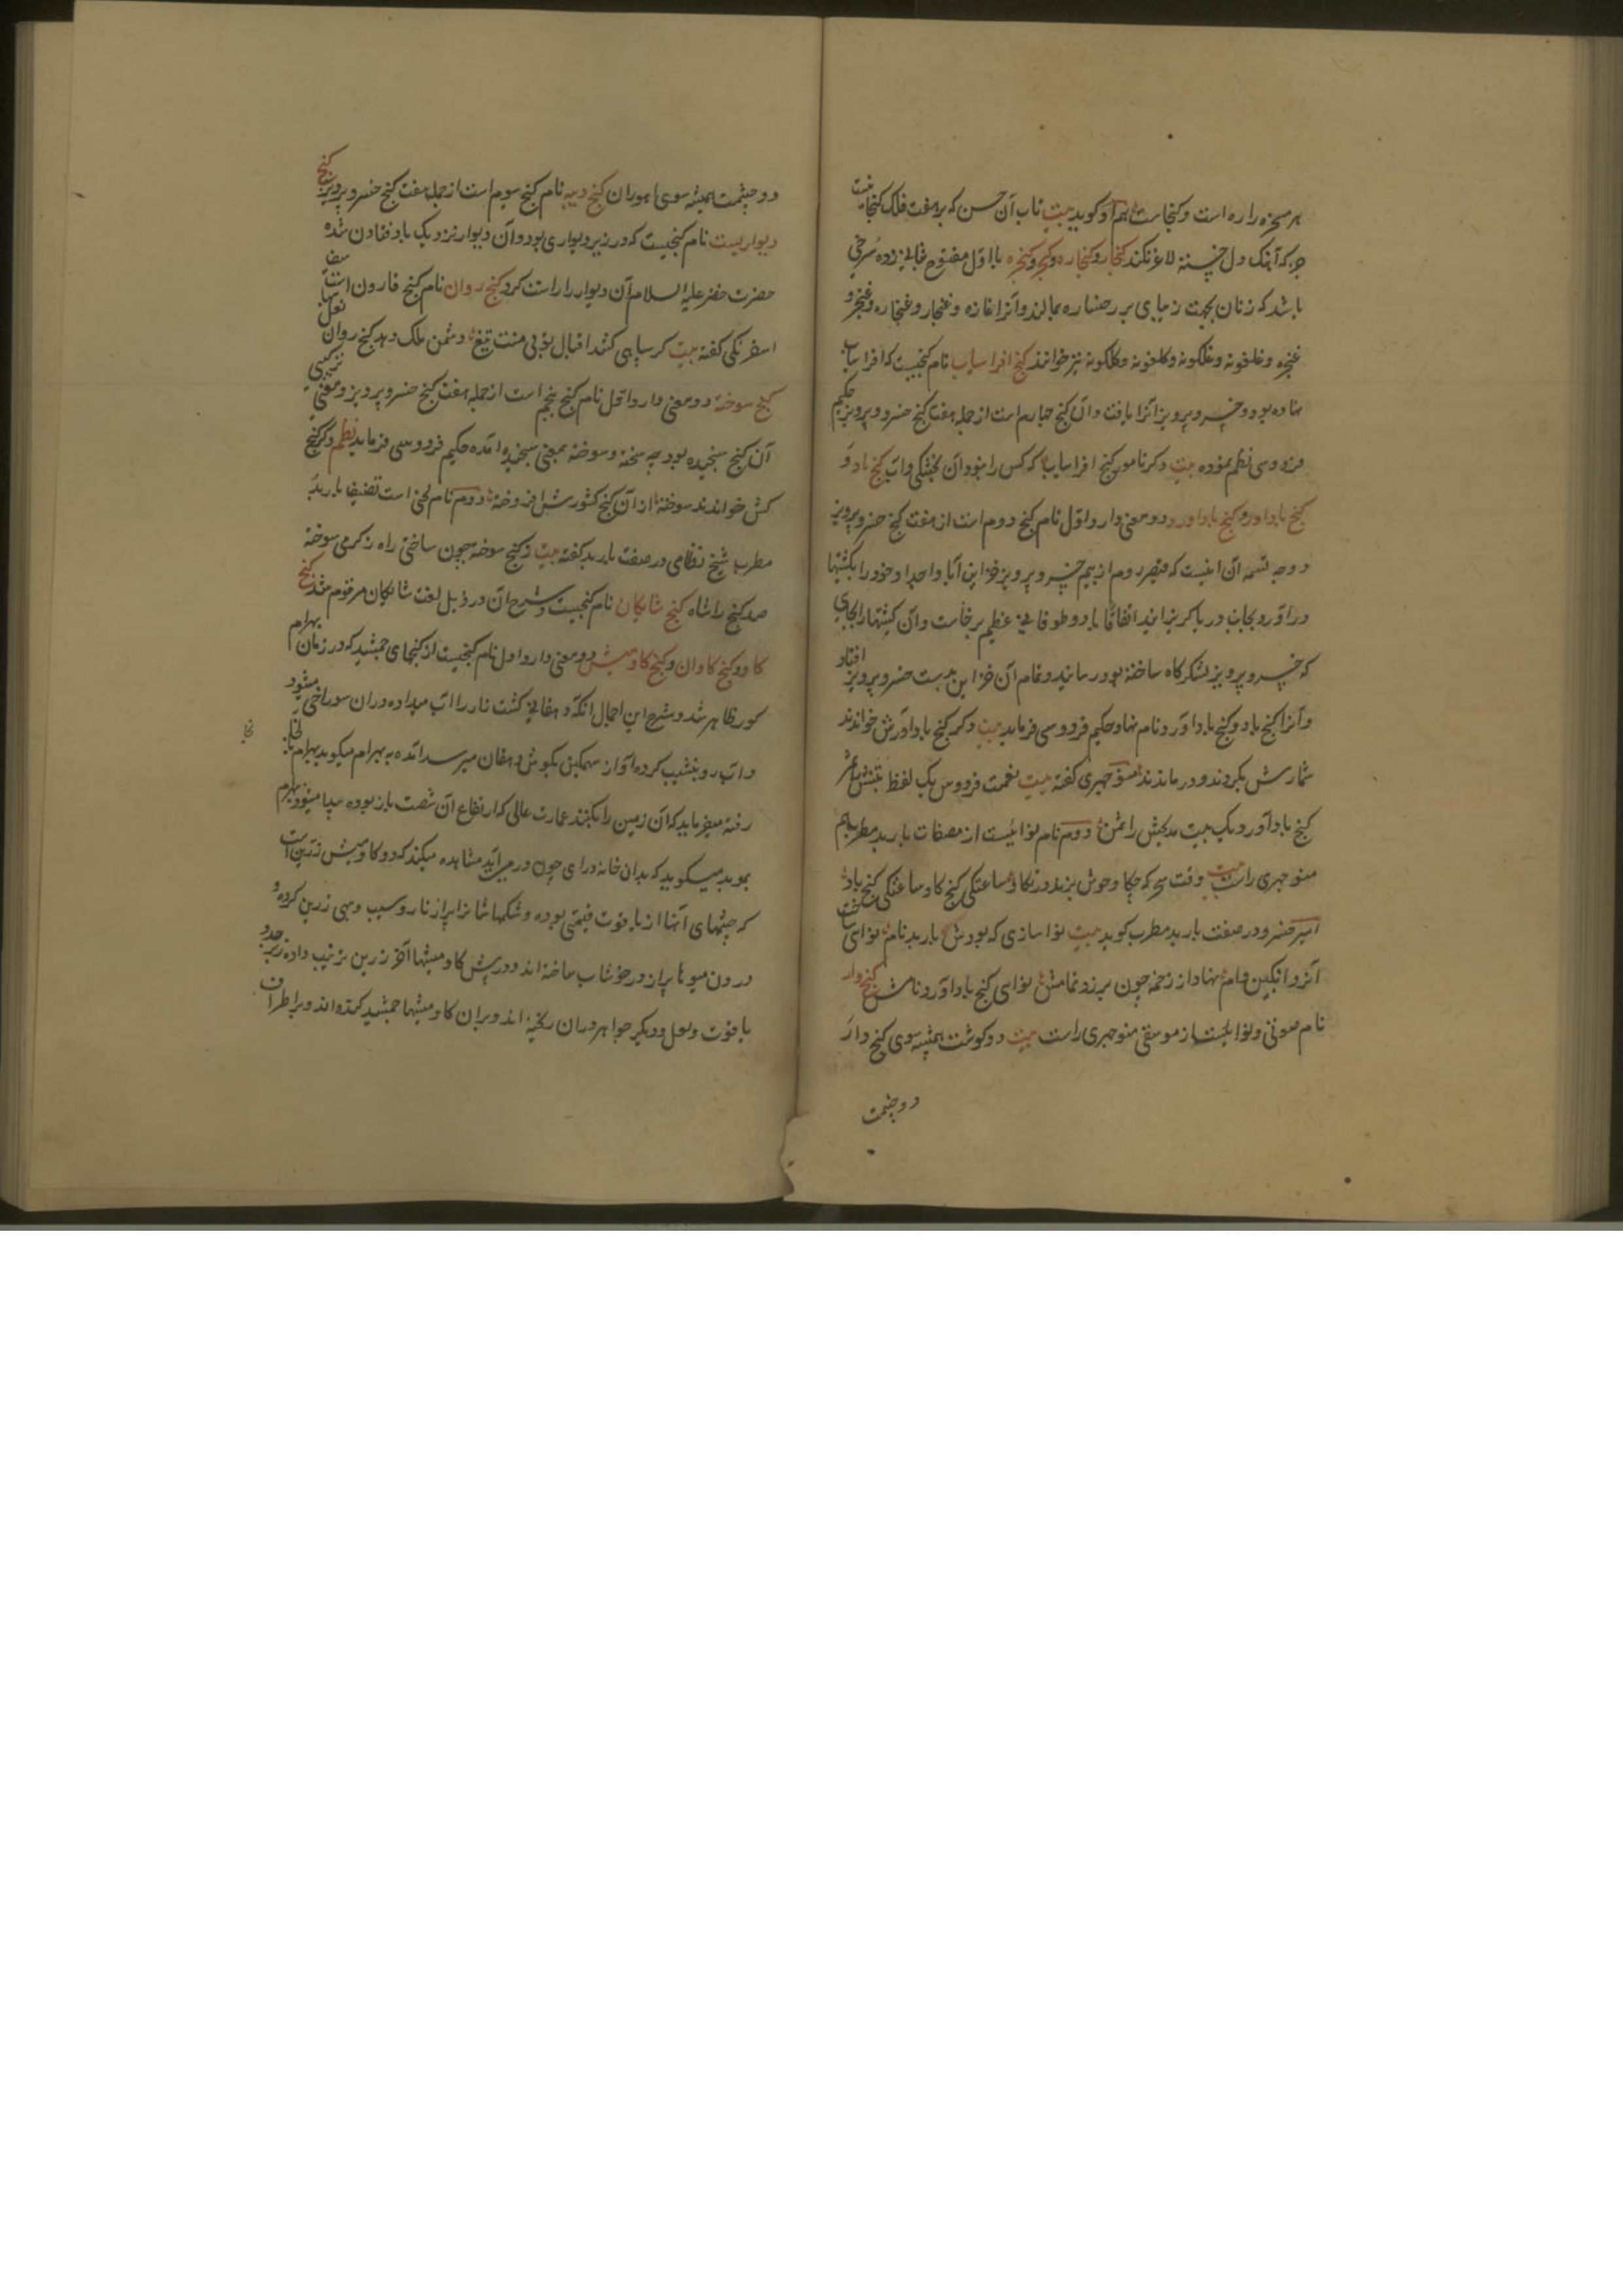 هر سحزه را ره است و کنجاست هم او کوید بیت تاب آن حسن که بر هفت فلک کنجا نیست
جز که آهنک دل خسته لاغر نکند کنجار و کنجاره و کنجر و کنجره با اول مفتوح بثانی زده سرخی
باشد که زنان بجهت زیبای بر رخساره بمالند و آنرا غازه و غنجار و غنجاره و غنجر و
غنجره و غلغونه و غلکونه و کلغونه و کلکونه نیز خوانند کنج افراسیاب نام کنجیست که افراسیاب
نهاده بود و خسرو پرویز آنرا یافت و آن کنج چهارم است از جمله هفت کنج خسرو پرویز حکیم
فردوسی نظم نموده بیت دکر نامور کنج افراسیاب که کس را نبود آن بخشکی و آب کنج باد و
کنج باداور و کنج باداورد دو معنی دارد اول نام کنج دوم است از هفت کنج خسرو پرویز
و وجه تسمه آن اینست که قیصر روم از بیم خسرو پرویز خزاین آبا و اجداد خود را بکشتیها
در آورد بجانب دریا کریزانید اتفاقا باد و طوفانی عظیم برخاست و آن کشتیها را بجای
که خسرو پرویز لشکر کاه ساخته بود رسانید و تمام آن خزاین بدست خسرو پرویز افتاد
و آنرا کنج باد و کنج باداورد نام نهاد حکیم فردوسی فرماید بیت دکر کنج باداورش خواندند
شمارش بکردند و در ماندند منوچهری کفته بیت
کنج باداورد یک بیت مدیحش را ثمن دوم نام نوائیست از مصنفات باربد مطرب هم
منوچهری راست بیت وقت سحر که چکاو خوش بزند در تکاو ساعتکی کنج کاو ساعتکی کنج باد
امیر خسرو در صفت باربد مطرب کوید بیت نوا سازی که بودش باربد نام نوای
از زخمه چون برزد نمامش نوای کنج باداورد نامش کنج وار
نام صوتی و نوایست از موسقی منوچهری راست بیت دو کوشت همیشه سوی کنج دار
دو چشمت
دو چشمت همیشه سوی اموران کنج دیبه نام کنج سوم است از جمله هفت کنج خسرو پرویز کنج
دیواربست نام کنجیست که در زیر دیواری بود و آن دیوار نزدیک با و فتادن شده
حضرت خضر علیه السلام آن دیوار را راست کرد کنج روان نام کنج قارون است سیف
اسفرنکی کفته بیت کر سپاهی کشد اقبال تو بی منت تیغ دشمن ملک دهد کنج روان
کنج سوخته دو معنی دارد اول نام کنج پنجم است از جمله هفت کنج خسرو پرویز و معنی ترکیبی
آن کنج سنجیده بود چه سخته و سوخته بمعنی سنجیده آمده حکیم فردوسی فرماید نظم دکر کنج
کش خواندند سوخته از آن کنج کشور شد افروخته دوم نام لحنی است تصنیف باربد
مطرب شیخ نظامی در صفت باربد کفته بیت ز کنج سوخته چون ساختی راه ز کرمی سوخته
صد کنج را شاه کنج شایکان نام کنجیست و شرح آن در ذیل لغت شایکان مرقوم شد کنج
کاو و کنج کاوان و کنج کاومیش دو معنی دارد اول نام کنجیست از کنجهای جمشید که در زمان بهرام
کور ظاهر شد و شرح این اجمال آنکه دهقانی کشت نار را آب میداده در آن سوراخی میشود
و آب رو بنشیب کرده آواز سهمکین بکوش دهقان میرسد آمده به بهرام میکوید بهرام
رفته میفرماید که آن زمین را بکنند عمارت عالی که ارتفاع آن شصت باز بوده پیدا میشود بهرام
بموبد میکوید که بدان خانه درای چون در می آید مشاهده میکند که دو کاومیش زرین است
که چشمهای آنها از یاقوت قیمتی بوده و شکمها شانرا پر از نار و سیب و بهی زرین کرده و
درون میوها پر از در خوشاب ساخته اند و در پیش کاومیشها آخر زرین ترتیب داده
یاقوت و لعل و دیکر جواهر در آن ریخته اند و بر آن کاومیشها جمشید کرده اند و بر اطراف